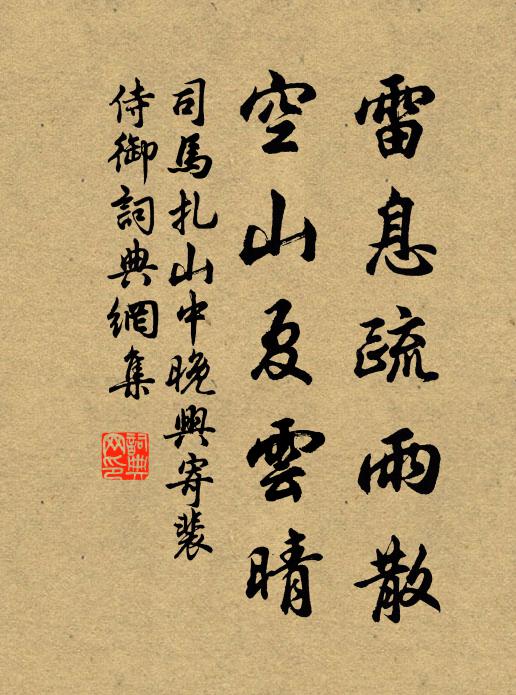 雷息疏雨散
空山夏雲晴
司馬扎山中晚興寄裴
侍御詞典網集
詞典
网印